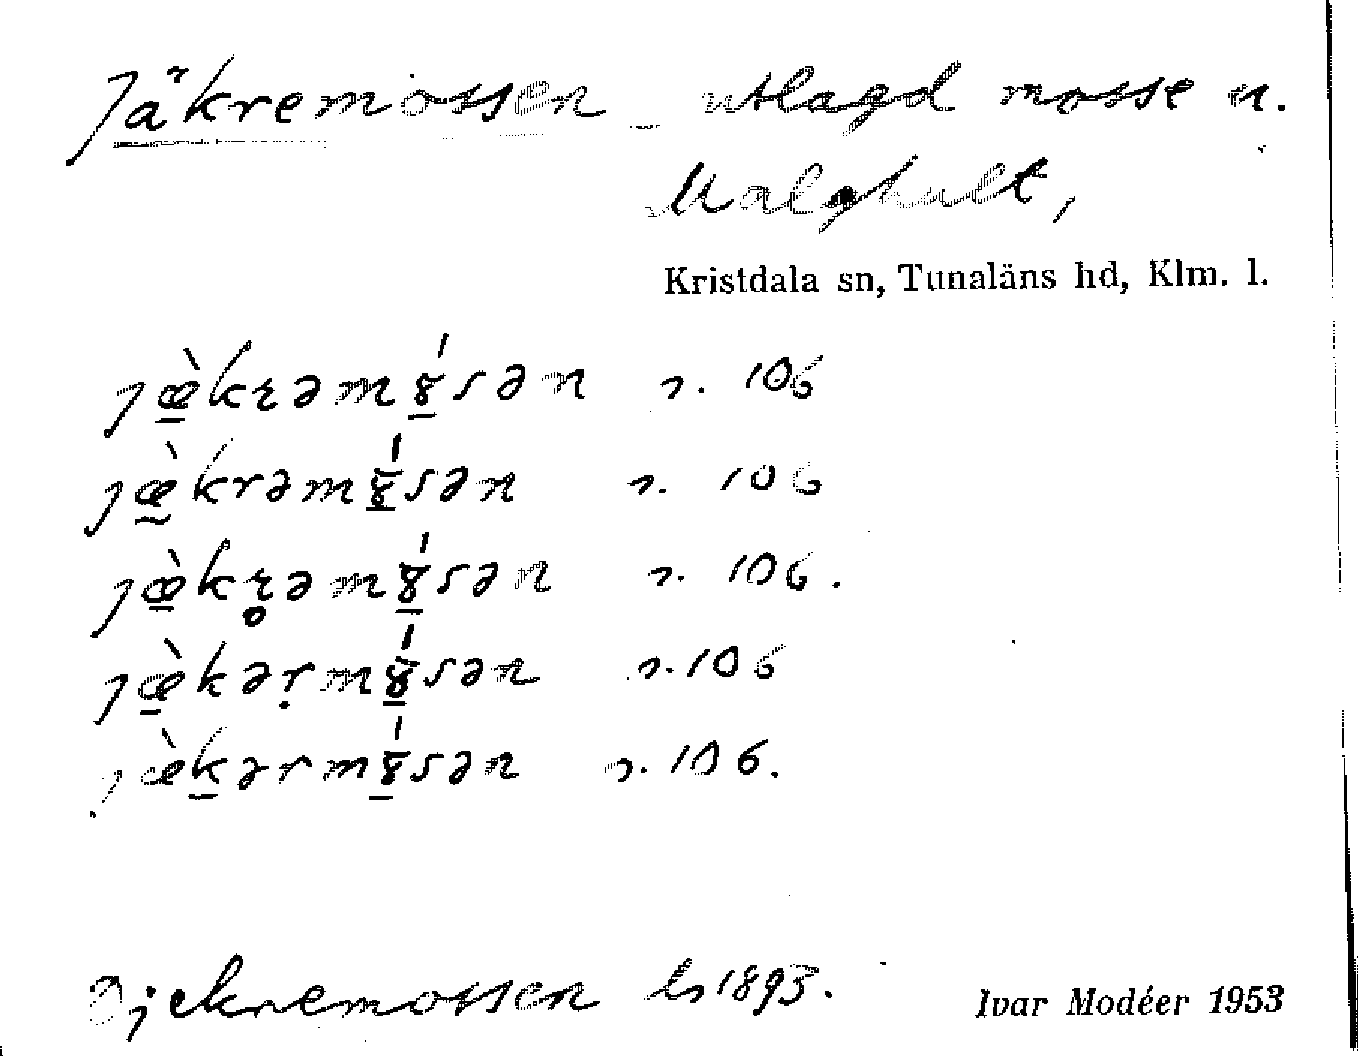 Jäkremossen – utlagd mosse n.
Malghult,
Kristdala sn, Tunaläns hd, Klm. l.
jæ̠̀kɽəmɤ̠́sən s. 106
jæ̰̀krəmɤ̠́sən s. 106
jæ̠̀kɽ̥əmɤ̠́sən s. 106.
jæ̠̀kəṛmɤ̠́sən s. 106
jæ̀ḵərmɤ̠́sən s. 106.
Djekremossen ls 1893.
Ivar Modéer 1953